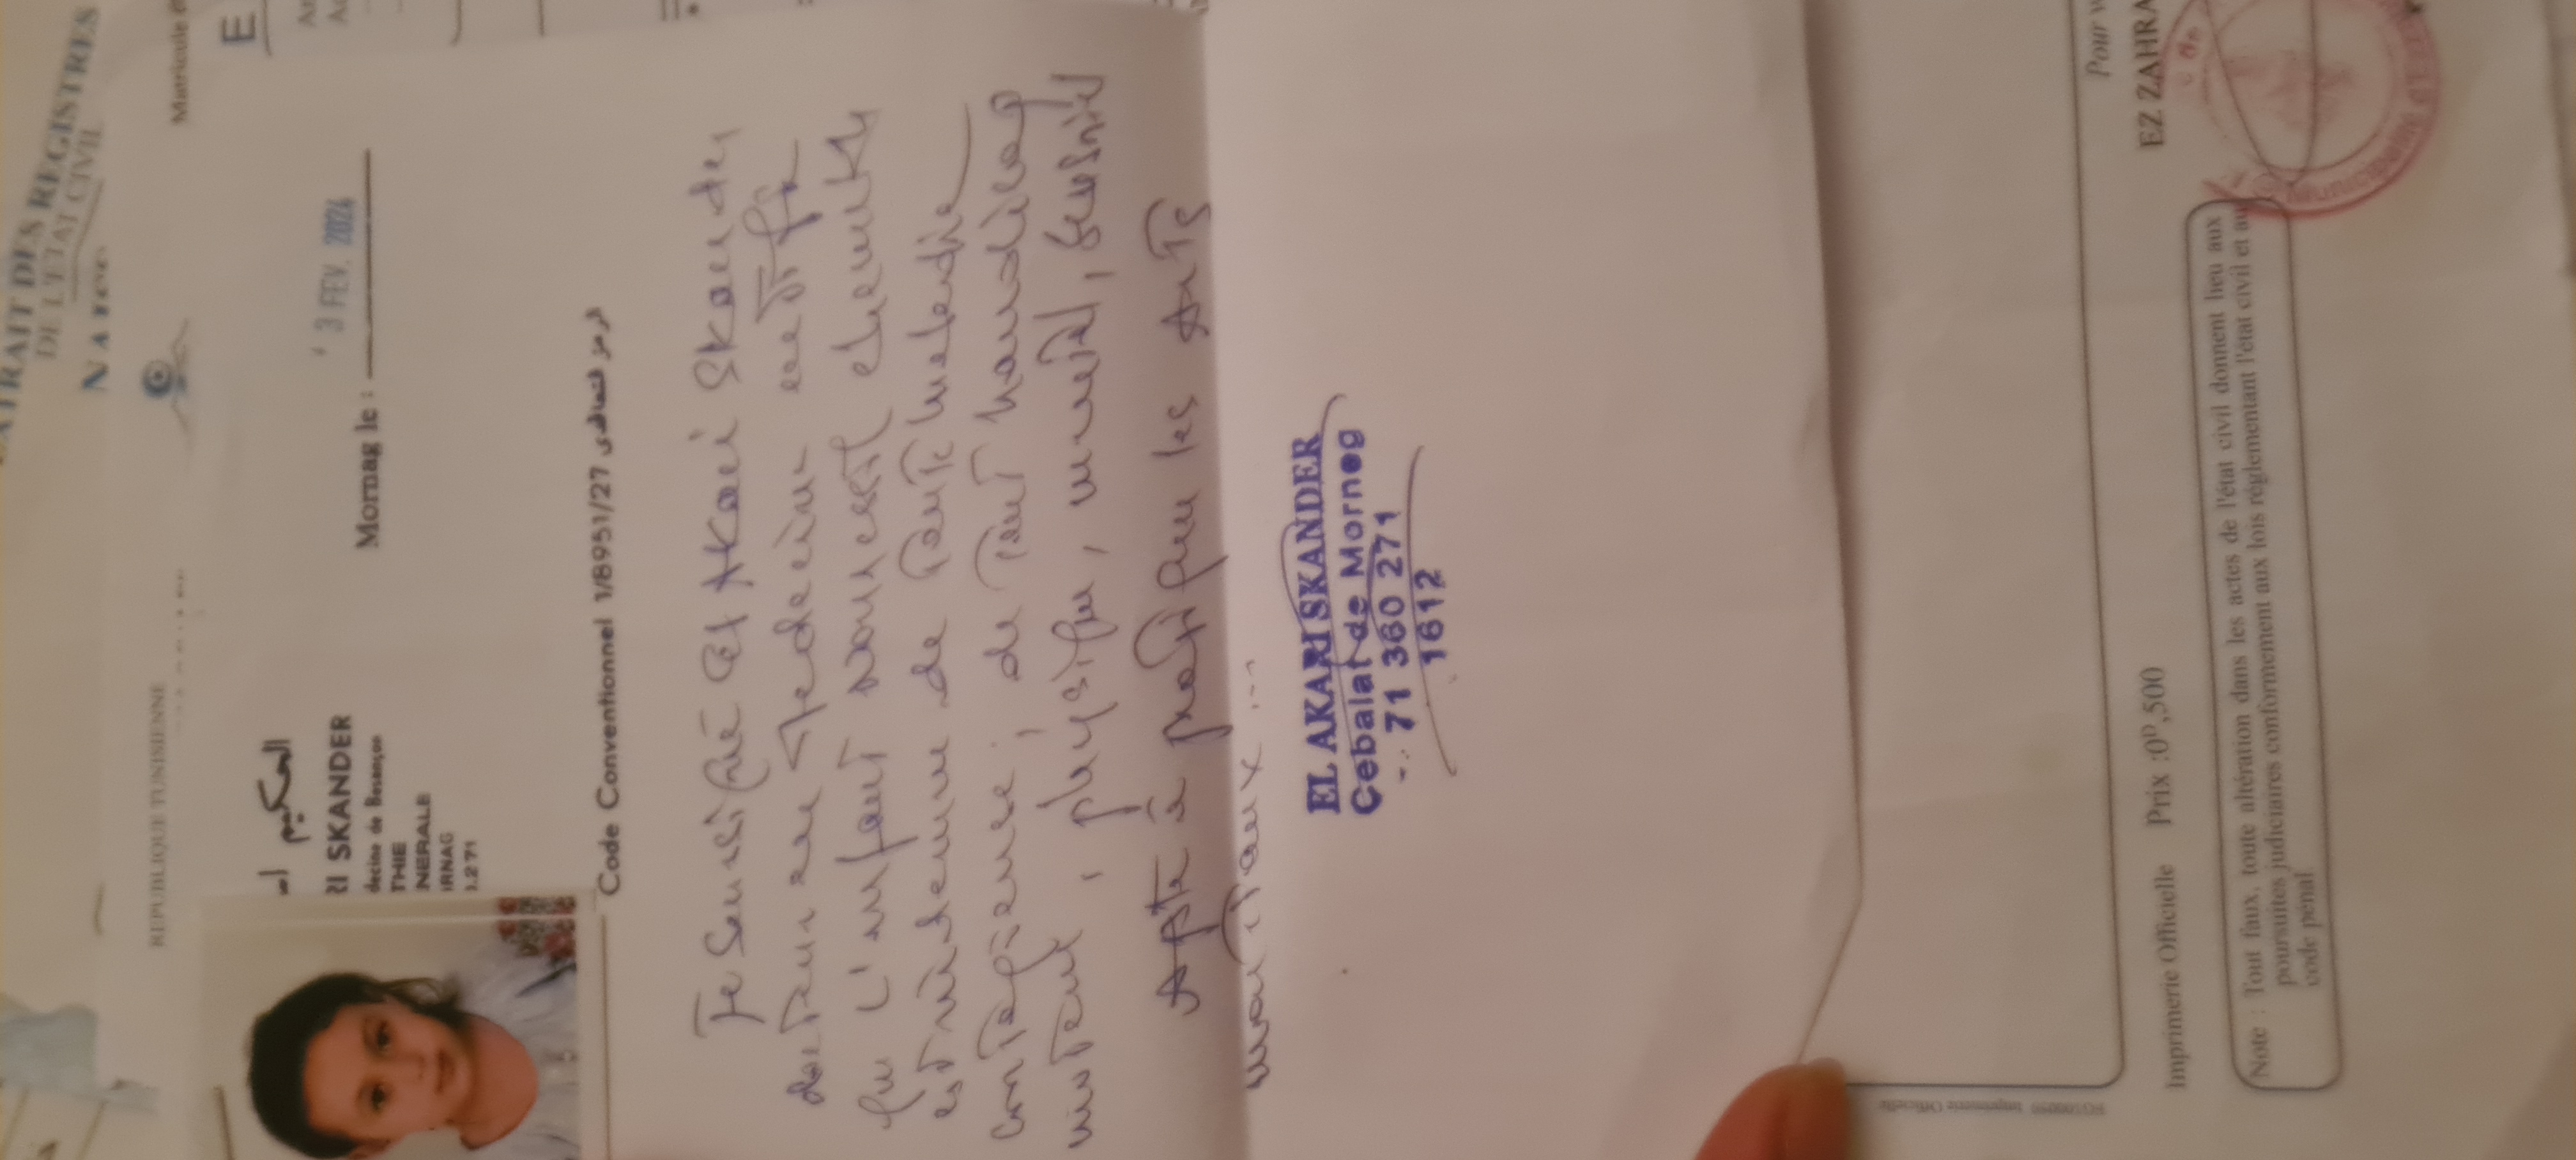 EXTRAIT DES REGISTRES
DE L'ETAT CIVIL
REPUBLIQUE TUNISIENNE
Matricule
E
الحكيم
RI SKANDER
decine de Besançon
THIE
NERALE
RNAG
0.271
Mornag le :
3 FEV. 2024
Code Conventionnel 1/8951/27 الرمز التعاقدي
Je soussigné El Akari Skander
docteur en Medecine certifie
que l'enfant
est indemne de toute maladie
contagieuse, de tout handicap
moteur, physique, mental, sensoriel
Apte à pratiquer les Arts
martiaux ...
EL AKARI SKANDER
Cebalat de Morneg
71 360 271
1612
Pour
EZ ZAHRA
Imprimerie Officielle Prix :0ᴰ,500
Note : Tout faux, toute altération dans les actes de l'état civil donnent lieu aux
poursuites judiciaires conformement aux lois réglementant l'état civil et au
code pénal
Imprimerie Officielle